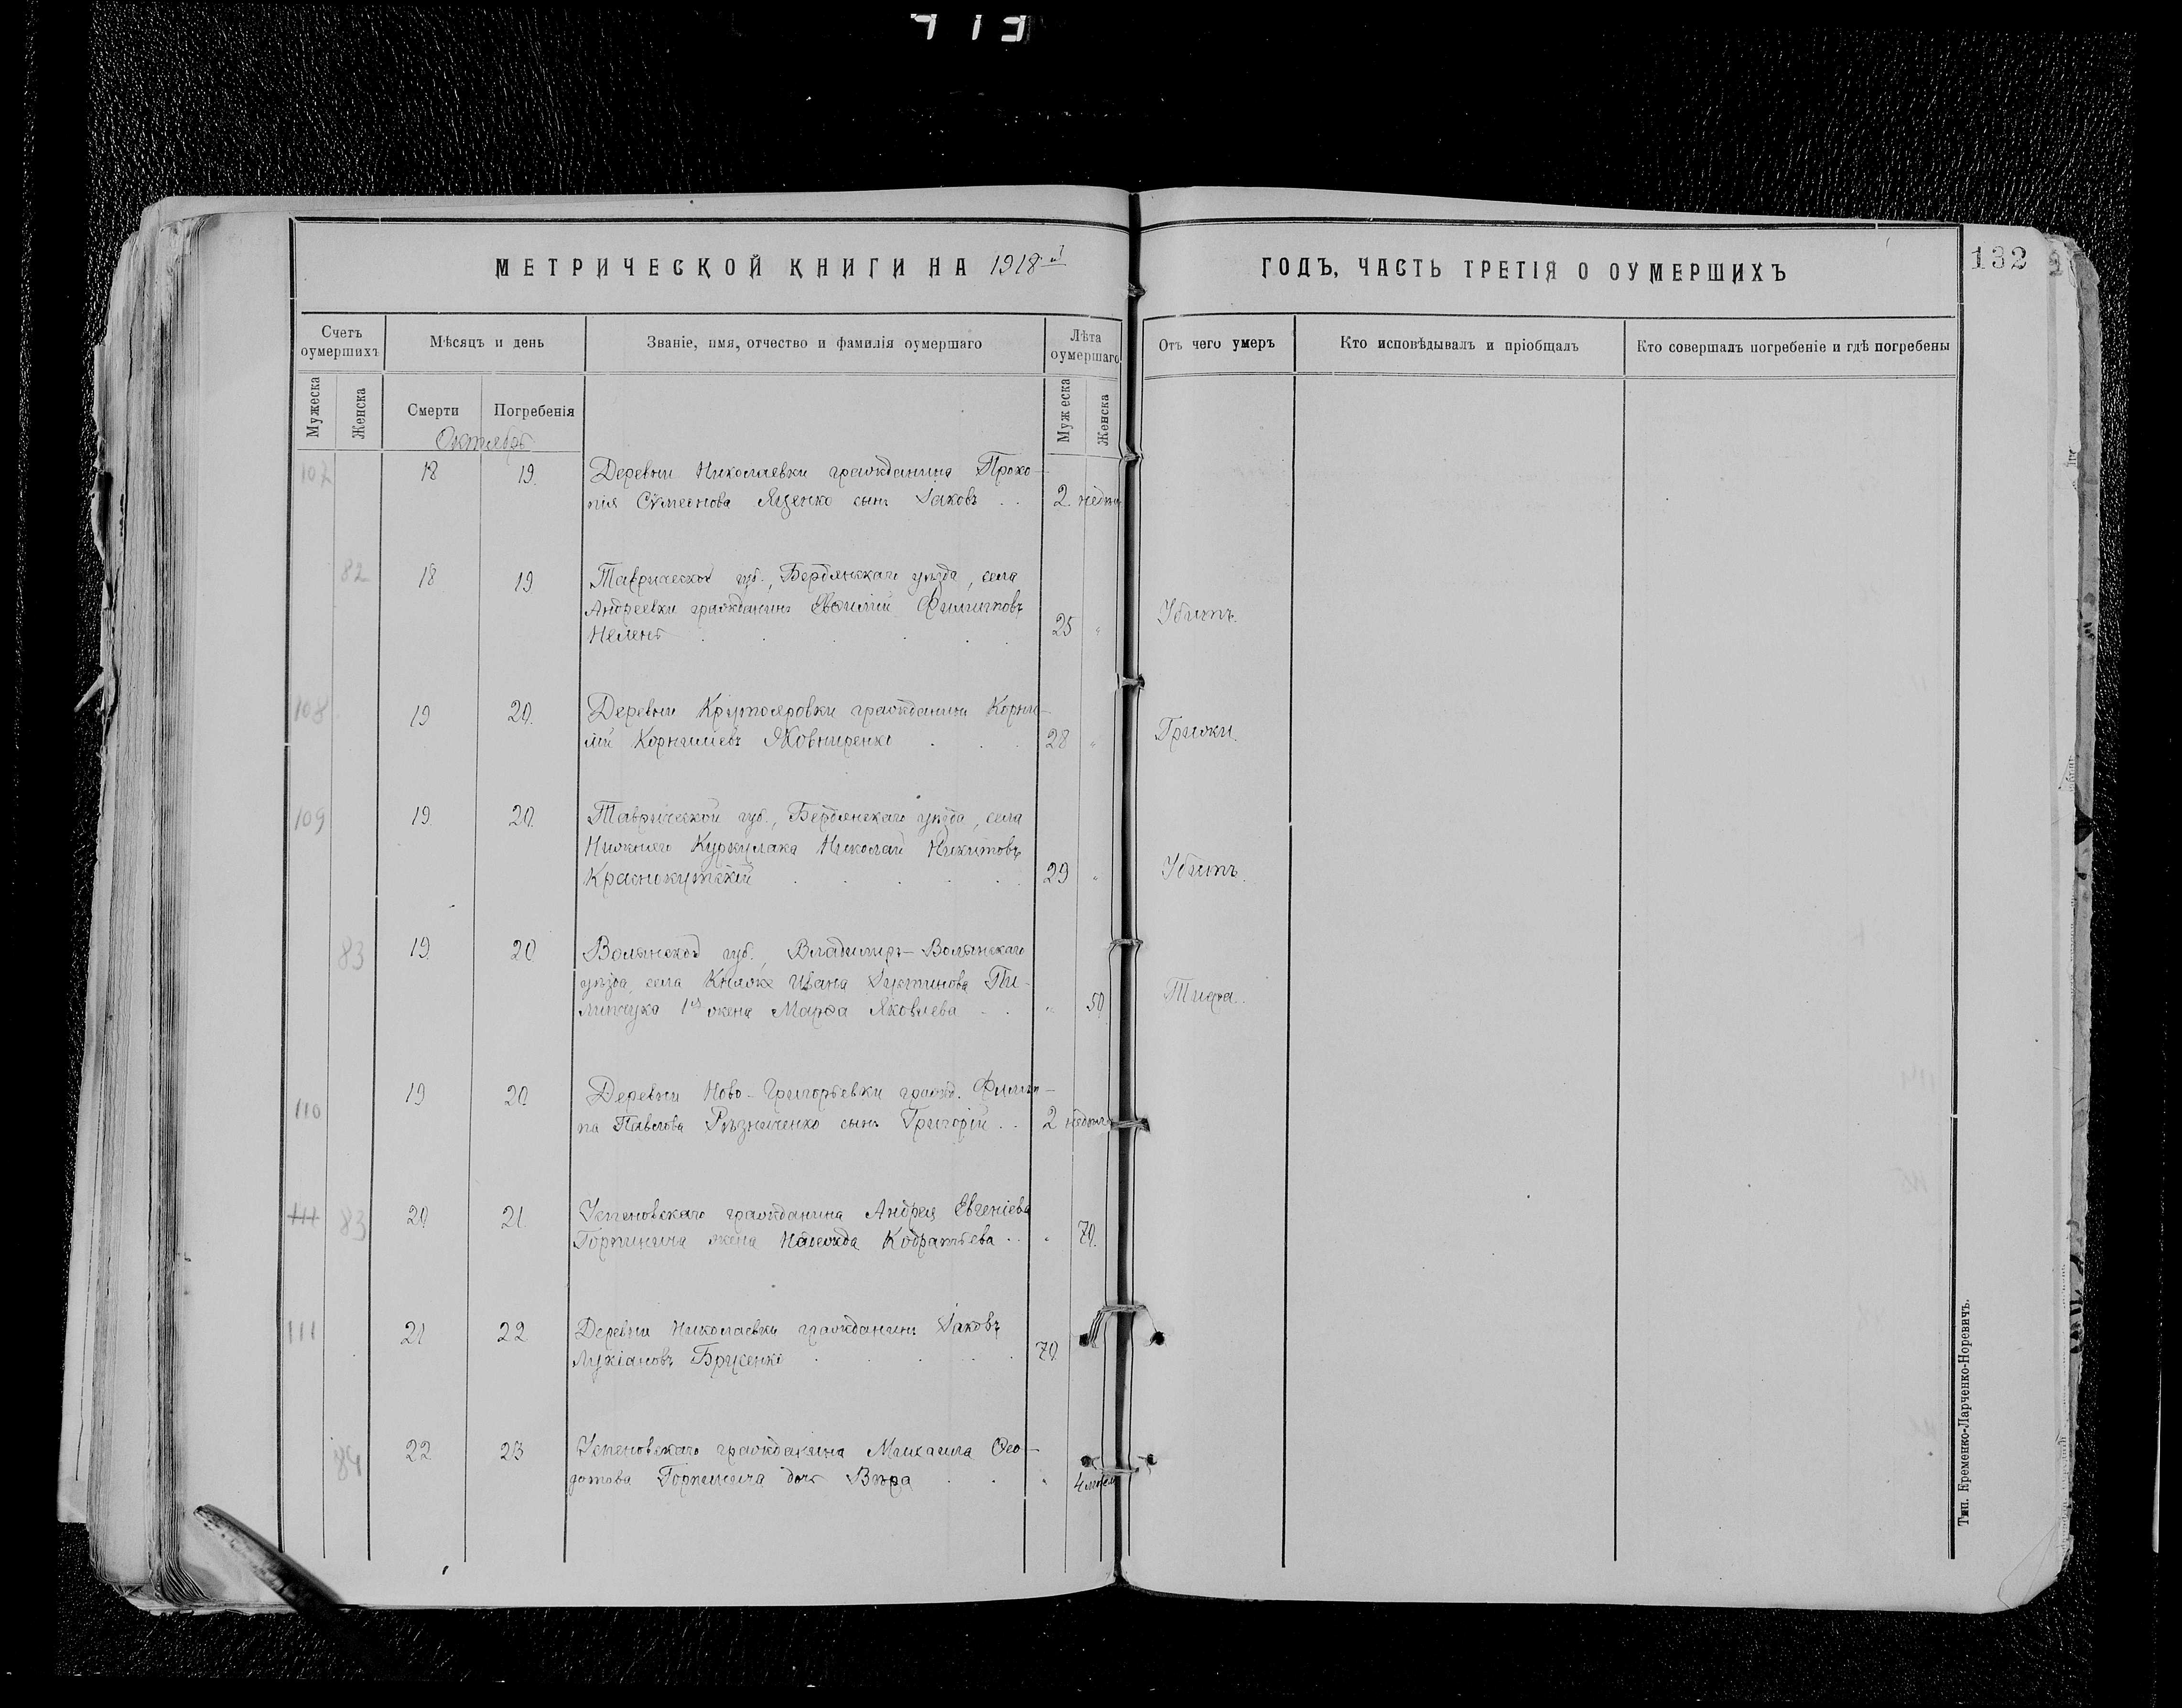 МЕТРИЧЕСКОЙ КНИГИ НА 1918й
ГОДЪ, ЧАСТЬ ТРЕТІЯ О ОУМЕРШИХЪ
132
Счетъ оумершихъ
Мѣсяцъ и день
Званіе, имя, отчество и фамилія оумершаго
Лѣта оумершаго
Отъ чего умеръ
Кто исповѣдывалъ и пріобщалъ
Кто совершалъ погребеніе и гдѣ погребены
Мужеска
Женска
Смерти
Погребенія
Мужеска
Женска
Октябрь
107 18 19. Деревни Николаевки гражданина Проко-
пія Сѵмеонова Яценко сынъ Іаковъ . . 2. недѣли
82 18 19 Таврической губ., Бердянскаго уѣзда, села
Андреевки гражданинъ Евѳимій Филипповъ
25 " Убитъ.
108 19 20. Деревни Крутояровки гражданинъ Корни-
лій Корниліевъ Жовниренко . . . 28 " Грижи.
109 19. 20. Таврической губ., Бердянскаго уѣзда, села
Нижняго Куркулака Николай Никитовъ
Краснокутскій . . . . . 29 " Убитъ.
83 19. 20. Волынской губ., Владимиръ-Волынскаго
уѣзда, села Ивана Іустинова Пи-
липчука 1я жена Марѳа Яковлева . . " 50. Тифа.
110 19 20. Деревни Ново-Григорьевки гражд. Филип-
па Павлова Рѣзниченко сынъ Григорій . . 2 недѣли
111 83 20. 21. Успеновскаго гражданина Андрея Евгеніева
Горпинича жена Надежда Кодратьева . . " 70.
111 21 22 Деревни Николаевки гражданинъ Іаковъ
Лукіановъ Брусенко . . . . . 70.
84 22 23 Успеновскаго гражданина Михаила Ѳео-
дотова Горпинича дочь Вѣра . . " 4 мѣсяц
Тип. Еременко-Ларченко-Норевичъ.